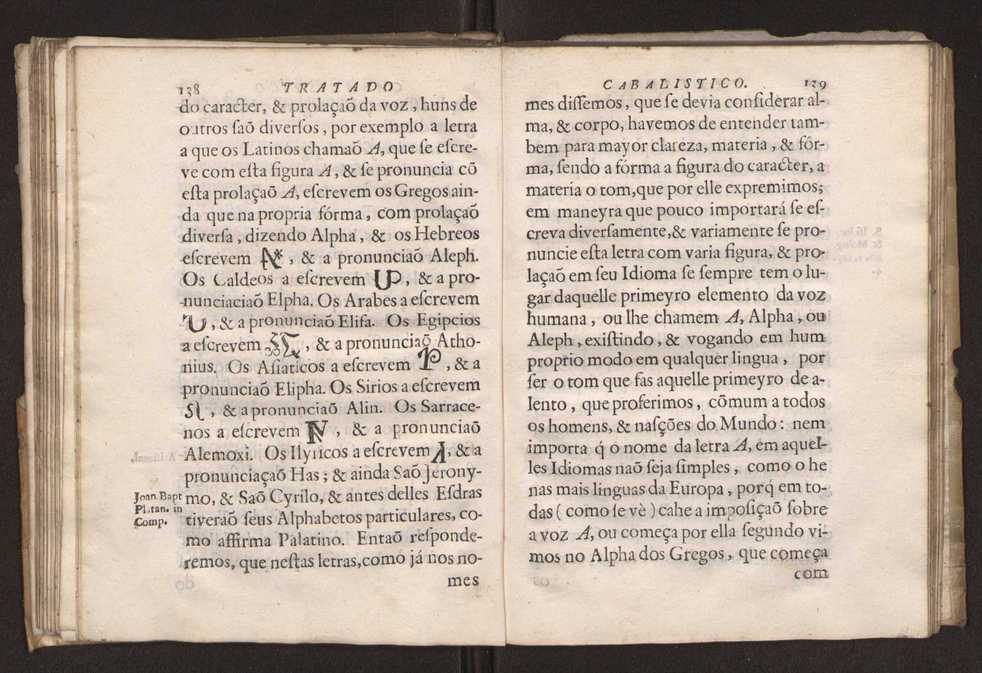 138 TRATADO
do caracter, & prolaçaõ da voz, huns de
outros saõ diversos, por exemplo a letra
a que os Latinos chamaõ A, que se escre-
ve com esta figura A, & se pronuncia cõ
esta prolaçaõ A, escrevem os Gregos ain-
da que na propria fórma, com prolaçaõ
diversa, dizendo Alpha, & os Hebreos
escrevem , & a pronunciaõ Aleph.
Os Caldeos a escrevem , & a pro-
nunciaciaõ Elpha. Os Arabes a escrevem
, & a pronunciaõ Elifa. Os Egipcios
a escrevem , & a pronunciaõ Atho-
nius. Os Asiaticos a escrevem , & a
pronunciaõ Elipha. Os Sirios a escrevem
, & a pronunciaõ Alin. Os Sarrace-
nos a escrevem , & a pronunciaõ
Alemoxi. Os Ilyricos a escrevem , & a
pronunciaçaõ Has; & ainda Saõ Jerony-
mo, & Saõ Cyrilo, & antes delles Esdras
tiveraõ seus Alphabetos particulares, co-
mo affirma Palatino. Entaõ responde-
remos, que nestas letras, como já nos no-
mes
Joan. Bapt
Platan. in
Comp.
CABALISTICO. 139
mes dissemos, que se devia considerar al-
ma, & corpo, havemos de entender tam-
bem para mayor clareza, materia, & fór-
ma, sendo a fórma a figura do caracter, a
materia o tom, que por elle exprimimos;
em maneyra que pouco importará se es-
creva diversamente, & variamente se pro-
nuncie esta letra com varia figura, & pro-
laçaõ em seu Idioma se sempre tem o lu-
gar daquelle primeyro elemento da voz
humana, ou lhe chamem A, Alpha, ou
Aleph, existindo, & vogando em hum
proprio modo em qualquer lingua, por
ser o tom que fas aquelle primeyro de a-
lento, que proferimos, cõmum a todos
os homens, & nasções do Mundo: nem
importa q̃ o nome da letra A, em aquel-
les Idiomas naõ seja simples, como o he
nas mais linguas da Europa, porq̃ em to-
das (como se vè) cahe a imposiçaõ sobre
a voz A, ou começa por ella segundo vi-
mos no Alpha dos Gregos, que começa
com